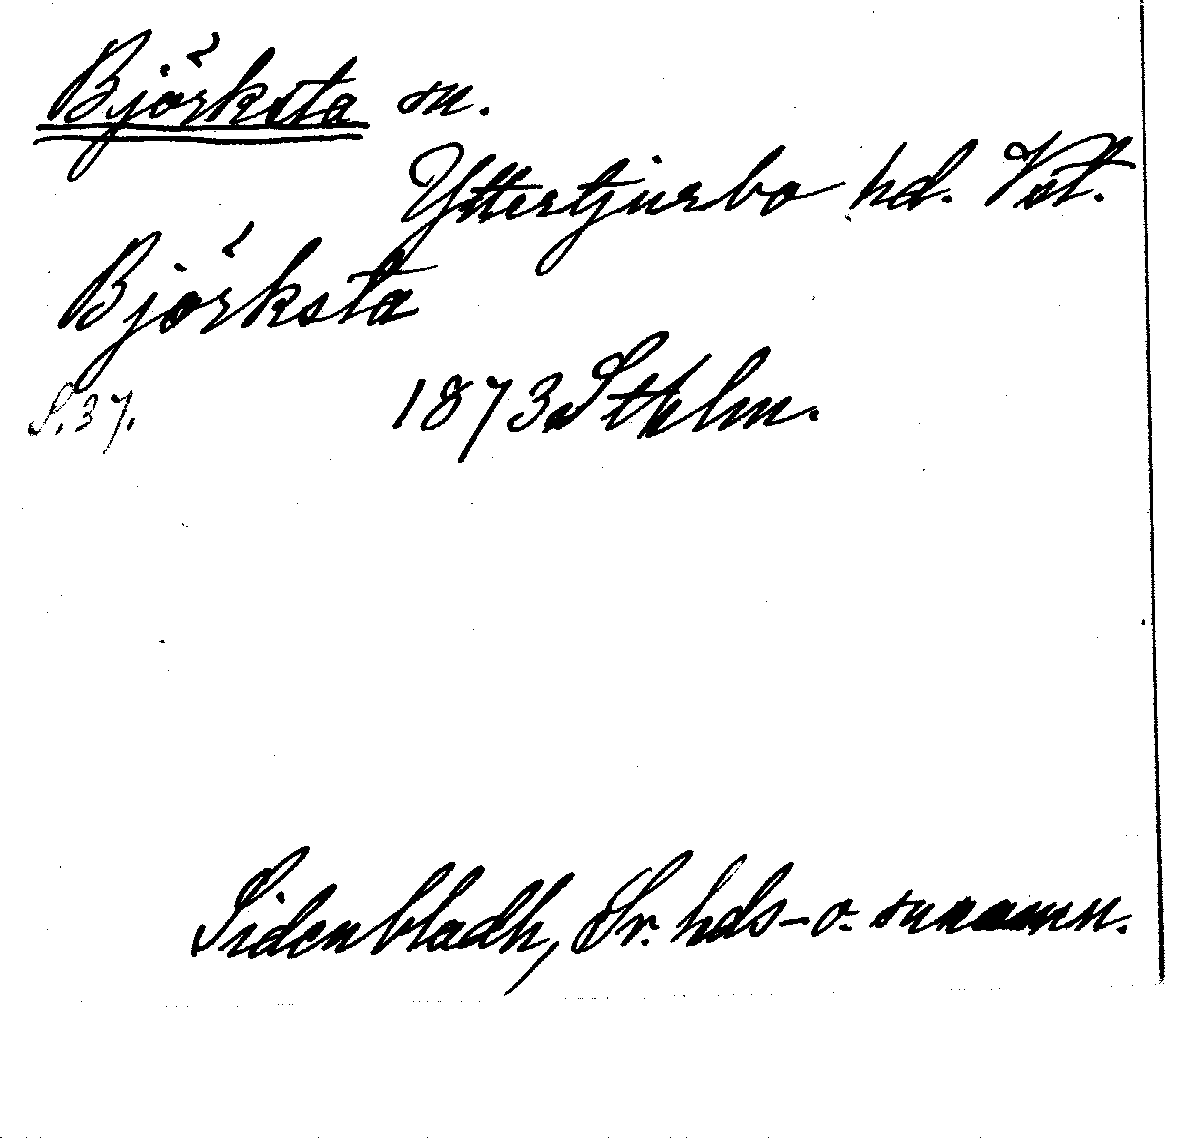 Björksta sn.
Yttertjurbo hd. Vstl.
Björksta
S. 37. 1873 Sthlm.
Sidenbladh, Sv. hds- o. snnamn.